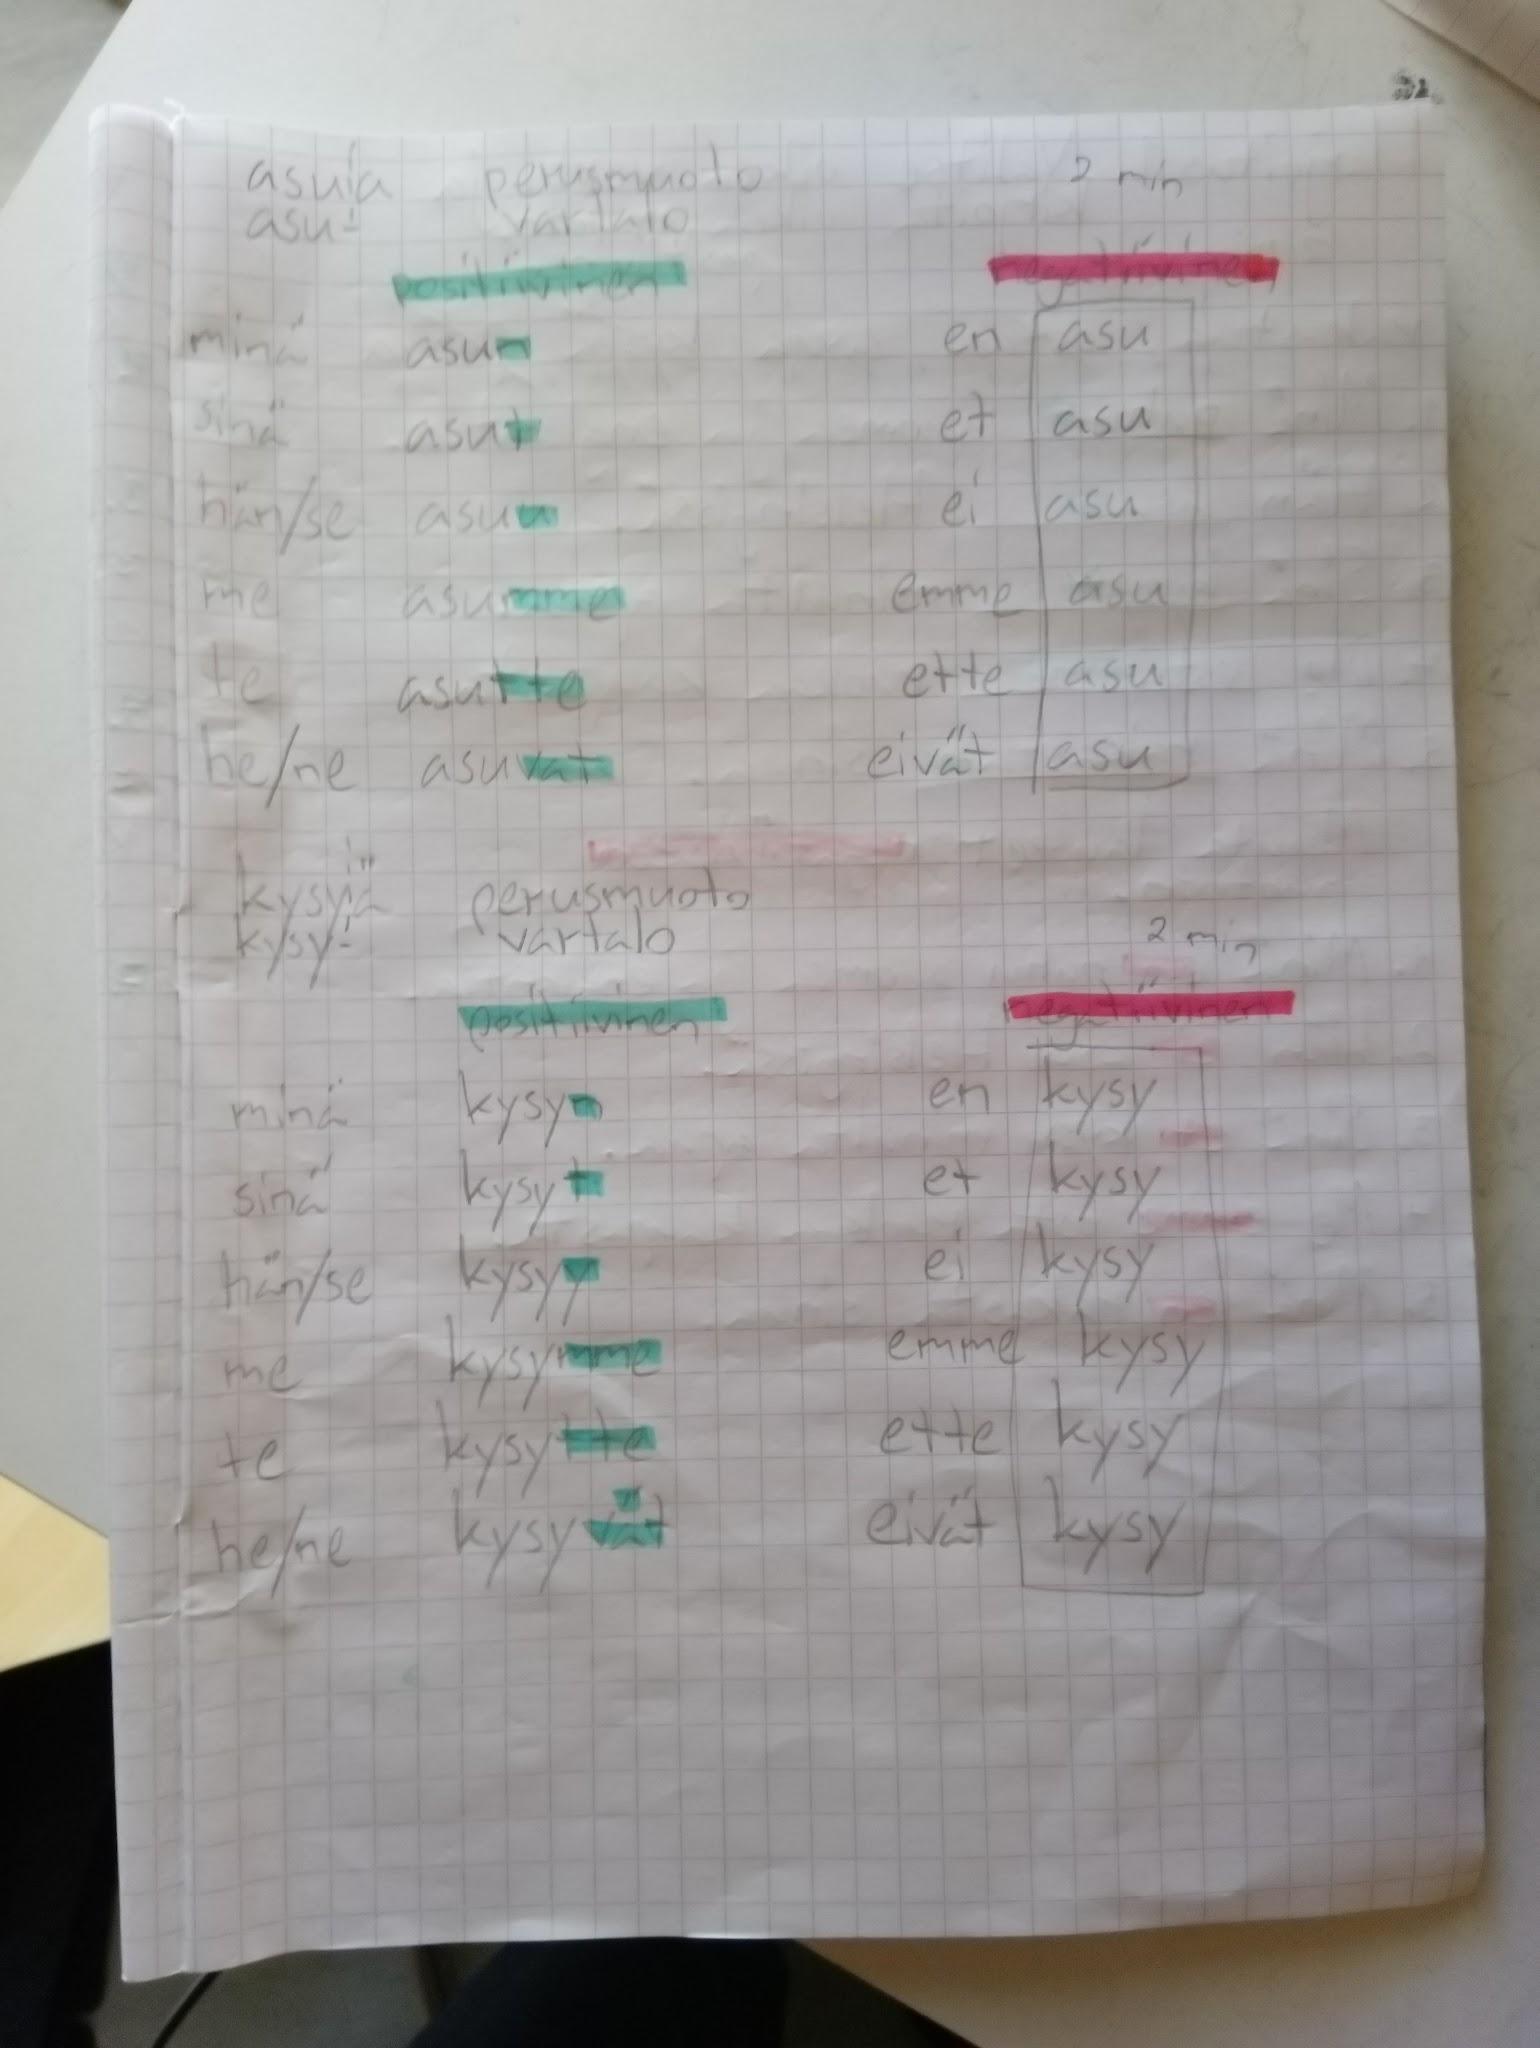 asu|a perusmuoto 2 min
asu- vartalo
positiivinen negatiivinen
minä asun en asu
sinä asut et asu
hän/se asuu ei asu
me asumme emme asu
te asutte ette asu
he/ne asuvat eivät asu
kysy|ä perusmuoto
kysy- vartalo 2 min
positiivinen negatiivinen
minä kysyn en kysy
sinä kysyt et kysy
hän/se kysyy ei kysy
me kysymme emme kysy
te kysytte ette kysy
he/ne kysyvät eivät kysy